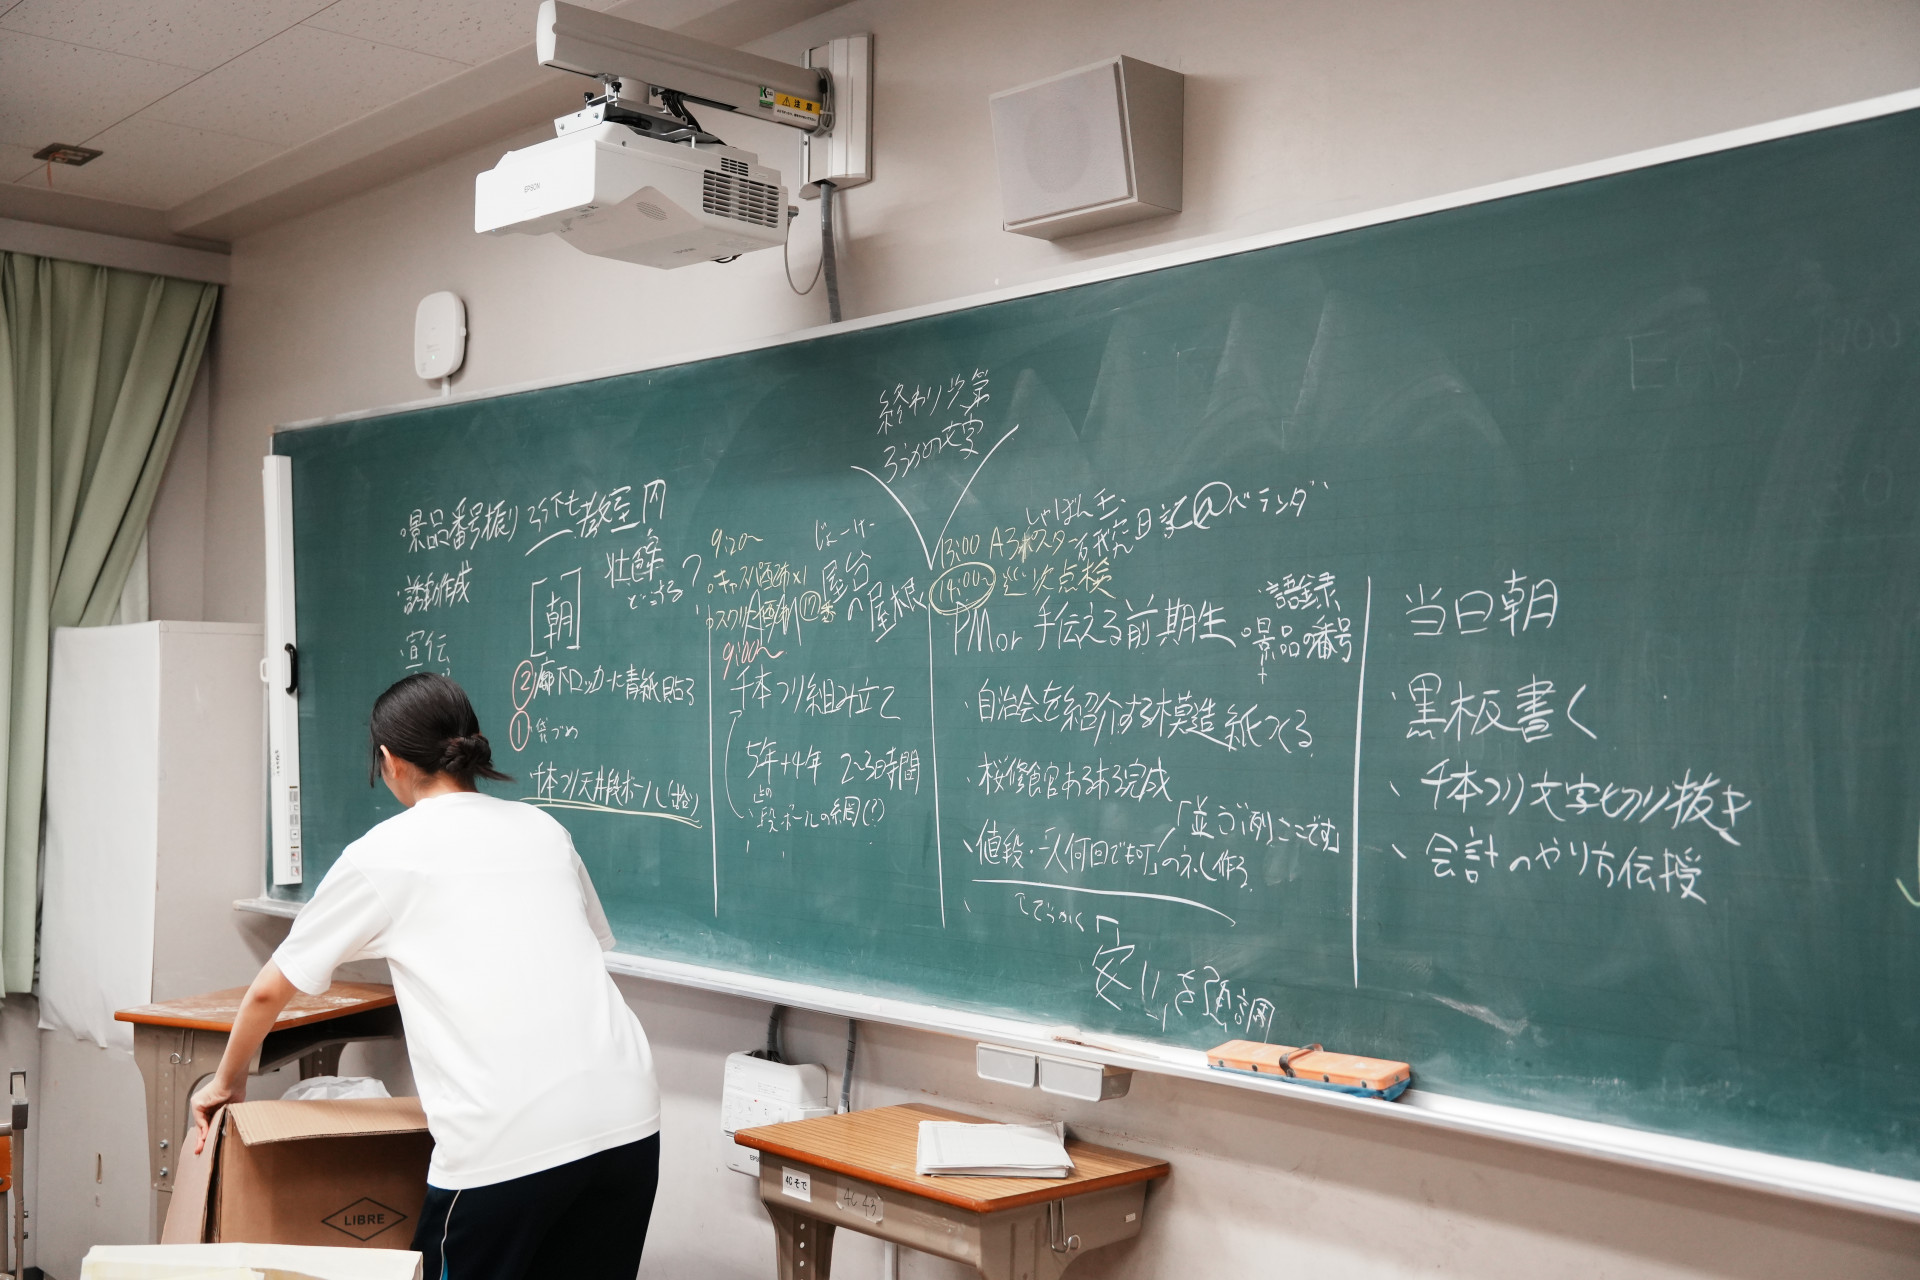 注意
EPSON
終わり次第
ろうかの文字
景品番号振り ろう下も教室内
・誘動作成
・宣伝
[朝]
どうする?
②廊下ロッカーに青紙貼る
①袋づめ
千本つり天井段ボール
9:00~
じょーけー
屋台の屋根
千本つり組み立て
5年+4年 2~3時間
段ボールの網(?)
しゃぼん玉
13:00 A3ポスター 研究日誌@ベランダ
14:00~ 次点検
PM or 手伝える前期生
・語録
・景品の番号
+
・自治会を紹介する模造紙つくる
・桜修館あるある完成
・値段・一人何回でも可」の
「並ぶ列ここです」
安い」を強調
当日朝
・黒板書く
・千本つり文字切り抜き
・会計のやり方伝授
LIBRE
4Cそで
4C 43